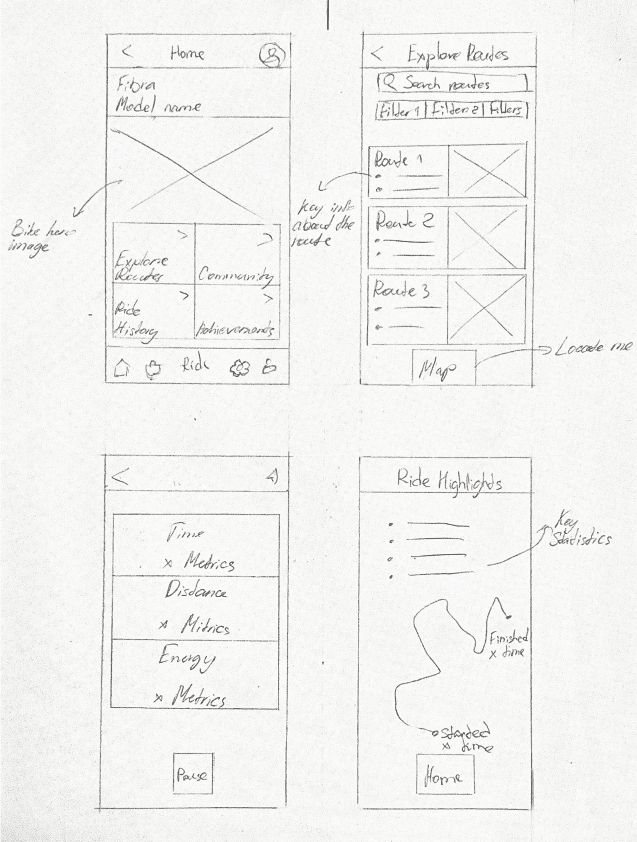 < Home
Fibra
Model name
Bike hero
image
>
Explore
Routes
>
Community
>
Ride
History
>
Achievements
Ride
< Explore Routes
Search routes
Filter 1 Filter 2 Filters
Route 1
Key info
about the
route
Route 2
Route 3
Map
Locade me
<
Time
x Metrics
Disdance
x Mitrics
Energy
x Metrics
Pause
Ride Highlights
Key
Statistics
Finished
x time
Started
x time
Home